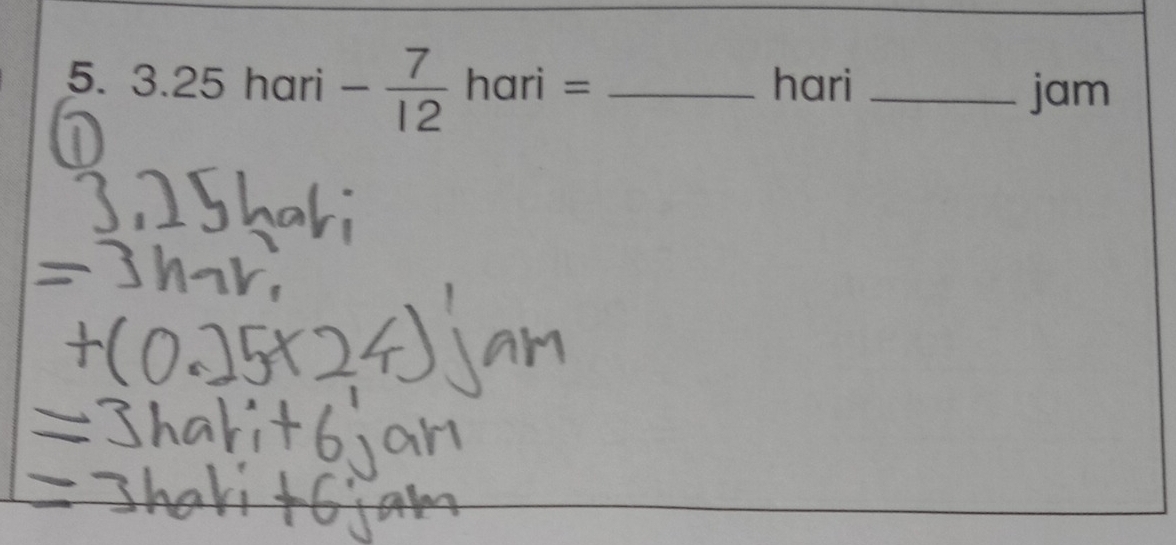 5. 3.25 hari − 7/12 hari = ______ hari ______ jam
①
3.25 hari
= 3 hari
+(0.25×24) jam
= 3 hari + 6 jam
= 3 hari + 6 jam